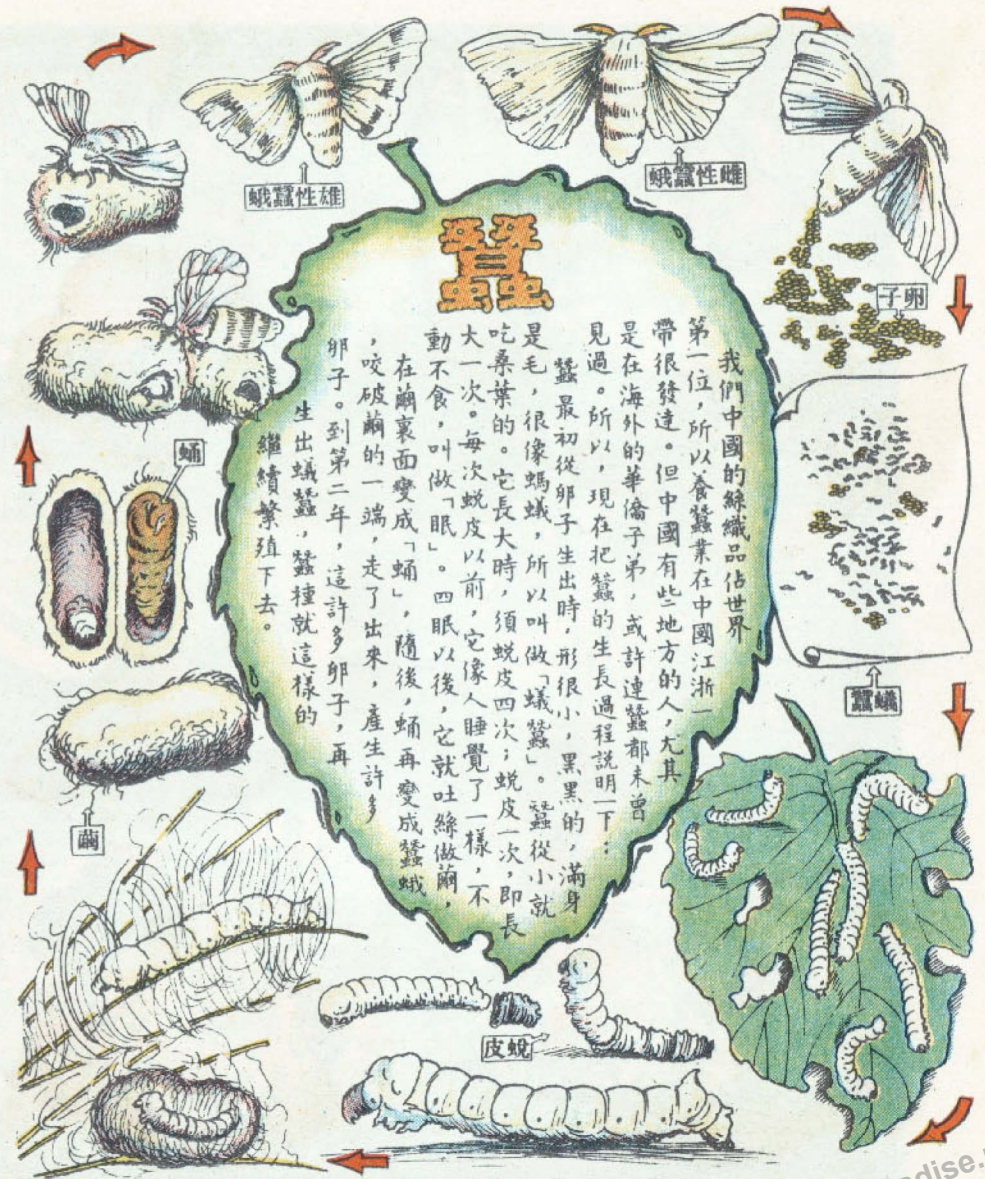 雄性蠶蛾
雌性蠶蛾
卵子
蠶
我們中國的絲織品佔世界
第一位，所以養蠶業在中國江浙一
帶很發達。但中國有些地方的人，尤其
是在海外的華僑子弟，或許連蠶都未曾
見過。所以，現在把蠶的生長過程說明一下：
蠶最初從卵子生出時，形很小，黑黑的，滿身
是毛，很像螞蟻，所以叫做「蟻蠶」。蠶從小就
吃桑葉的。它長大時，須蛻皮四次；蛻皮一次，即長
大一次。每次蛻皮以前，它像人睡覺了一樣，不
動不食，叫做「眠」。四眠以後，它就吐絲做繭，
在繭裏面變成「蛹」，隨後，蛹再變成蠶蛾
，咬破繭的一端，走了出來，產生許多
卵子。到第二年，這許多卵子，再
生出蟻蠶，蠶種就這樣的
繼續繁殖下去。
蟻蠶
蛹
繭
蛻皮